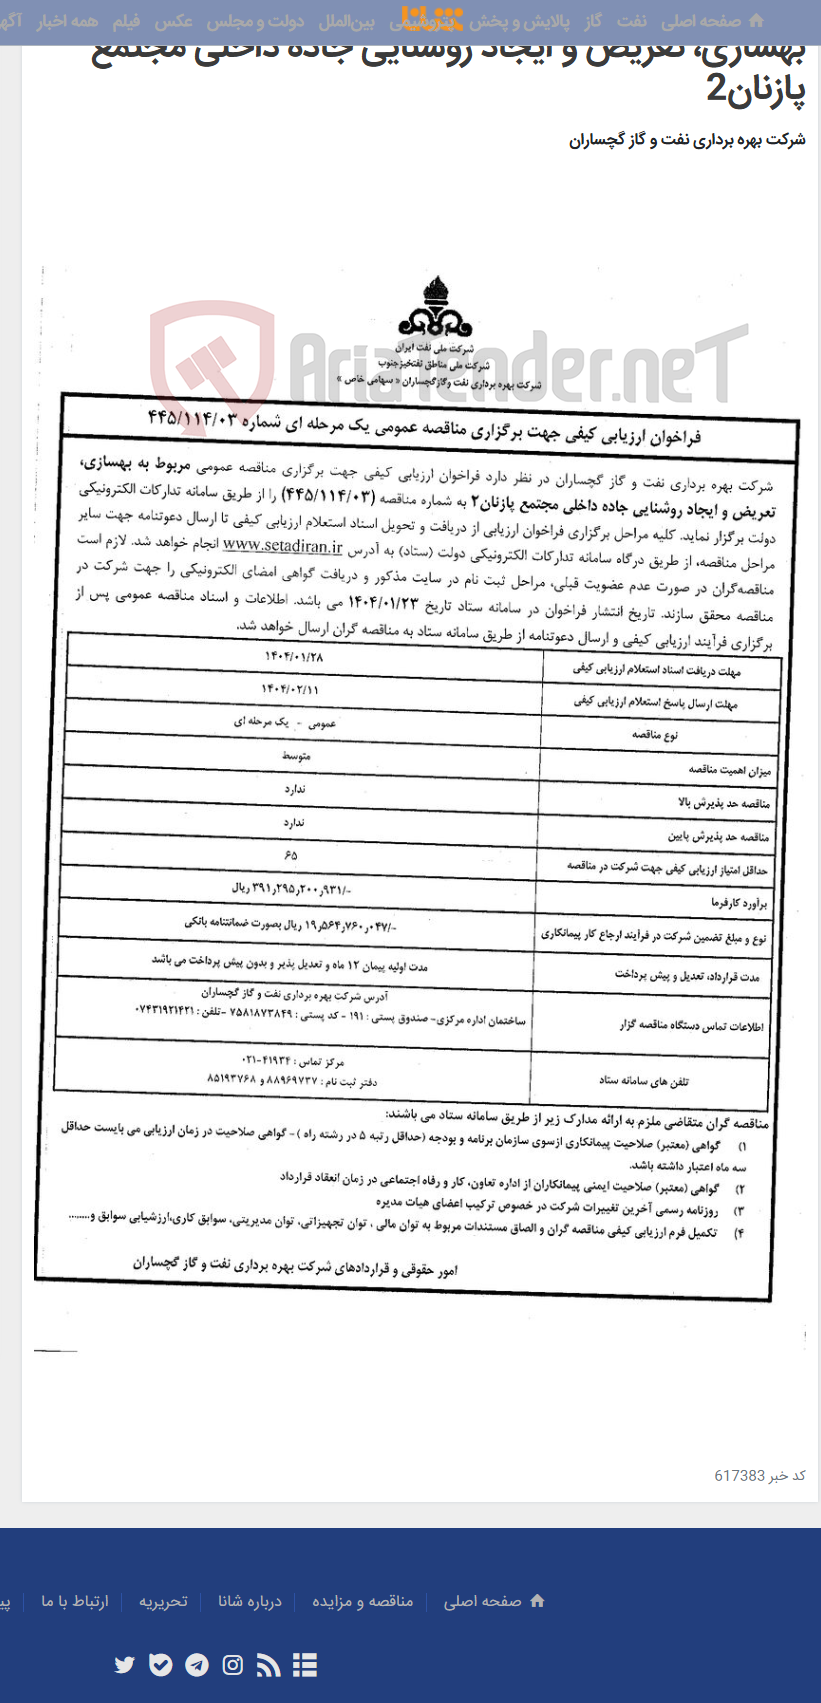 صفحه اصلی نفت گاز پالایش و پخش پتروشیمی بین‌الملل دولت و مجلس عکس فیلم همه اخبار
شانا
بهسازی، تعریض و ایجاد روشنایی جاده داخلی مجتمع
پازنان2
شرکت بهره برداری نفت و گاز گچساران
AriaTender.neT
شرکت ملی نفت ایران
شرکت ملی مناطق نفتخیز جنوب
شرکت بهره برداری نفت و گاز گچساران « سهامی خاص »
فراخوان ارزیابی کیفی جهت برگزاری مناقصه عمومی یک مرحله ای شماره ۴۴۵/۱۱۴/۰۳
شرکت بهره برداری نفت و گاز گچساران در نظر دارد فراخوان ارزیابی کیفی جهت برگزاری مناقصه عمومی مربوط به بهسازی،
تعریض و ایجاد روشنایی جاده داخلی مجتمع پازنان۲ به شماره مناقصه (۴۴۵/۱۱۴/۰۳) را از طریق سامانه تدارکات الکترونیکی
دولت برگزار نماید. کلیه مراحل برگزاری فراخوان ارزیابی از دریافت و تحویل اسناد استعلام ارزیابی کیفی تا ارسال دعوتنامه جهت سایر
مراحل مناقصه، از طریق درگاه سامانه تدارکات الکترونیکی دولت (ستاد) به آدرس www.setadiran.ir انجام خواهد شد. لازم است
مناقصه‌گران در صورت عدم عضویت قبلی، مراحل ثبت نام در سایت مذکور و دریافت گواهی امضای الکترونیکی را جهت شرکت در
مناقصه محقق سازند. تاریخ انتشار فراخوان در سامانه ستاد تاریخ ۱۴۰۴/۰۱/۲۳ می باشد. اطلاعات و اسناد مناقصه عمومی پس از
برگزاری فرآیند ارزیابی کیفی و ارسال دعوتنامه از طریق سامانه ستاد به مناقصه گران ارسال خواهد شد.
مهلت دریافت اسناد استعلام ارزیابی کیفی ۱۴۰۴/۰۱/۲۸
مهلت ارسال پاسخ استعلام ارزیابی کیفی ۱۴۰۴/۰۲/۱۱
نوع مناقصه عمومی - یک مرحله ای
میزان اهمیت مناقصه متوسط
مناقصه حد پذیرش بالا ندارد
مناقصه حد پذیرش پایین ندارد
حداقل امتیاز ارزیابی کیفی جهت شرکت در مناقصه ۶۵
برآورد کارفرما ۳۹۱٫۲۹۵٫۲۰۰٫۹۳۱/- ریال
نوع و مبلغ تضمین شرکت در فرآیند ارجاع کار پیمانکاری ۱۹٫۵۶۴٫۷۶۰٫۰۴۷/- ریال بصورت ضمانتنامه بانکی
مدت قرارداد، تعدیل و پیش پرداخت مدت اولیه پیمان ۱۲ ماه و تعدیل پذیر و بدون پیش پرداخت می باشد
آدرس شرکت بهره برداری نفت و گاز گچساران
اطلاعات تماس دستگاه مناقصه گزار ساختمان اداره مرکزی- صندوق پستی : ۱۹۱ - کد پستی : ۷۵۸۱۸۷۳۸۴۹ -تلفن : ۰۷۴۳۱۹۲۱۴۲۱
تلفن های سامانه ستاد مرکز تماس : ۴۱۹۳۴-۰۲۱
دفتر ثبت نام : ۸۸۹۶۹۷۳۷ و ۸۵۱۹۳۷۶۸
مناقصه گران متقاضی ملزم به ارائه مدارک زیر از طریق سامانه ستاد می باشند:
۱) گواهی (معتبر) صلاحیت پیمانکاری ازسوی سازمان برنامه و بودجه (حداقل رتبه ۵ در رشته راه ) - گواهی صلاحیت در زمان ارزیابی می بایست حداقل
سه ماه اعتبار داشته باشد.
۲) گواهی (معتبر) صلاحیت ایمنی پیمانکاران از اداره تعاون، کار و رفاه اجتماعی در زمان انعقاد قرارداد
۳) روزنامه رسمی آخرین تغییرات شرکت در خصوص ترکیب اعضای هیات مدیره
۴) تکمیل فرم ارزیابی کیفی مناقصه گران و الصاق مستندات مربوط به توان مالی ، توان تجهیزاتی، توان مدیریتی، سوابق کاری،ارزشیابی سوابق و........
امور حقوقی و قراردادهای شرکت بهره برداری نفت و گاز گچساران
کد خبر 617383
صفحه اصلی مناقصه و مزایده درباره شانا تحریریه ارتباط با ما